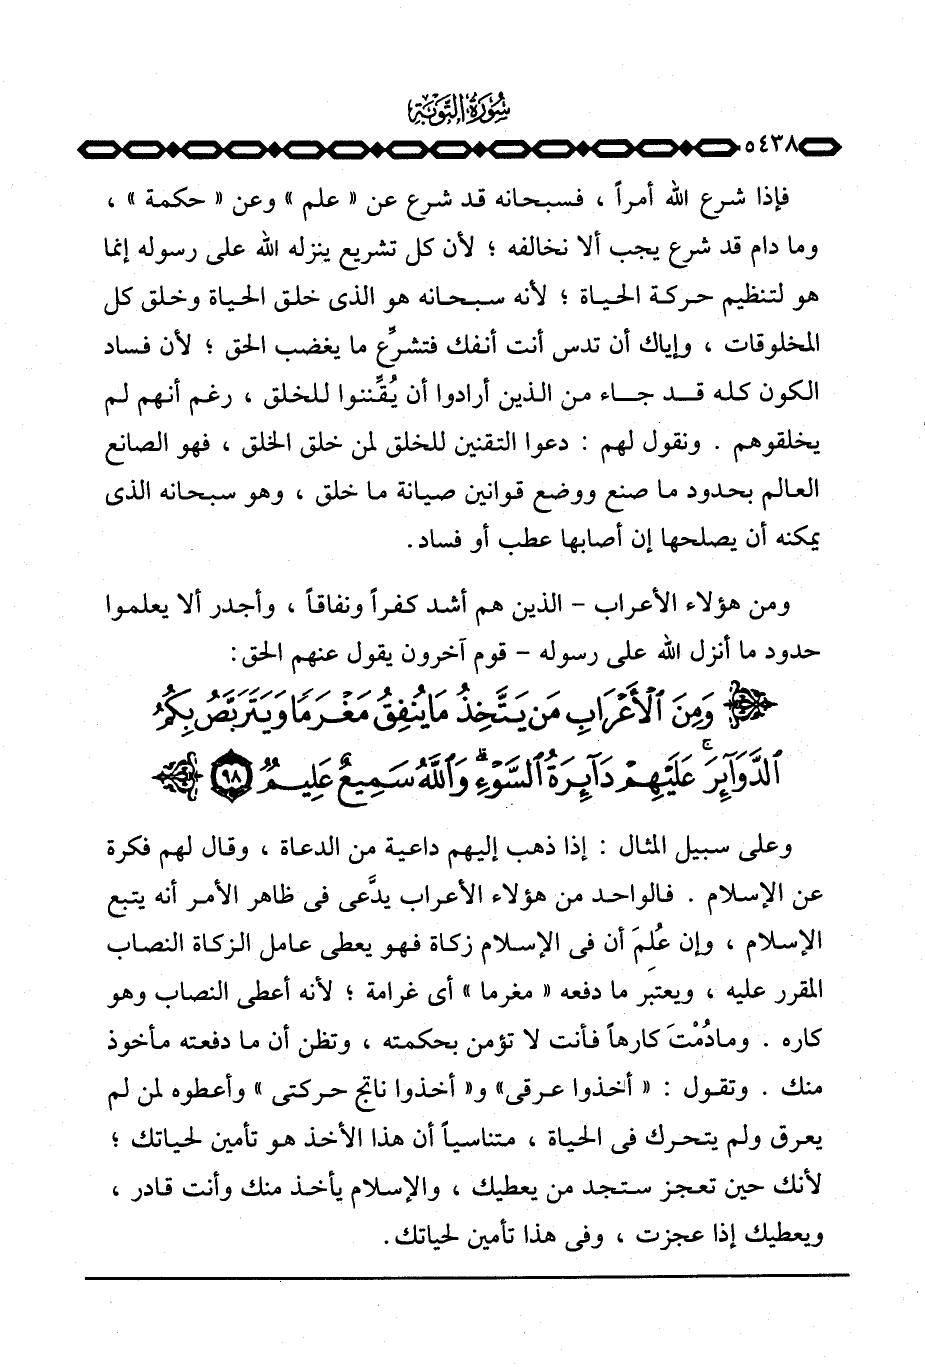 سُورَةُ التَّوْبَةِ
٥٤٣٨
فإذا شرع الله أمراً ، فسبحانه قد شرع عن « علم » وعن « حكمة » ،
وما دام قد شرع يجب ألا نخالفه ؛ لأن كل تشريع ينزله الله على رسوله إنما
هو لتنظيم حركة الحياة ؛ لأنه سبحانه هو الذى خلق الحياة وخلق كل
المخلوقات ، وإياك أن تدس أنت أنفك فتشرِّع ما يغضب الحق ؛ لأن فساد
الكون كله قد جاء من الذين أرادوا أن يُقَنِّنوا للخلق ، رغم أنهم لم
يخلقوهم . ونقول لهم : دعوا التقنين للخلق لمن خلق الخلق ، فهو الصانع
العالم بحدود ما صنع ووضع قوانين صيانة ما خلق ، وهو سبحانه الذى
يمكنه أن يصلحها إن أصابها عطب أو فساد.
ومن هؤلاء الأعراب - الذين هم أشد كفراً ونفاقاً ، وأجدر ألا يعلموا
حدود ما أنزل الله على رسوله - قوم آخرون يقول عنهم الحق:
وَمِنَ ٱلْأَعْرَابِ مَن يَتَّخِذُ مَا يُنفِقُ مَغْرَمًا وَيَتَرَبَّصُ بِكُمُ
ٱلدَّوَآئِرَ ۚ عَلَيْهِمْ دَآئِرَةُ ٱلسَّوْءِ ۗ وَٱللَّهُ سَمِيعٌ عَلِيمٌ ٩٨
وعلى سبيل المثال : إذا ذهب إليهم داعية من الدعاة ، وقال لهم فكرة
عن الإسلام . فالواحد من هؤلاء الأعراب يدَّعى فى ظاهر الأمر أنه يتبع
الإسلام ، وإن عُلِمَ أن فى الإسلام زكاة فهو يعطى عامل الزكاة النصاب
المقرر عليه ، ويعتبر ما دفعه « مغرما » أى غرامة ؛ لأنه أعطى النصاب وهو
كاره . ومادُمْتَ كارهاً فأنت لا تؤمن بحكمته ، وتظن أن ما دفعته مأخوذ
منك . وتقول : « أخذوا عرقى» و« أخذوا ناتج حركتى » وأعطوه لمن لم
يعرق ولم يتحرك فى الحياة ، متناسياً أن هذا الأخذ هو تأمين لحياتك ؛
لأنك حين تعجز ستجد من يعطيك ، والإسلام يأخذ منك وأنت قادر ،
ويعطيك إذا عجزت ، وفى هذا تأمين لحياتك.